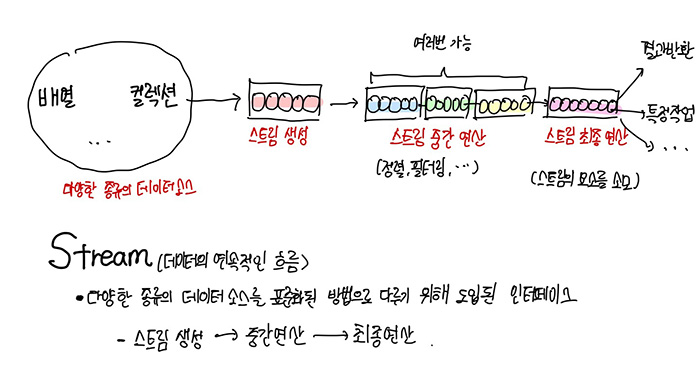 여러번 가능
배열 컬렉션
...
다양한 종류의 데이터소스
스트림 생성
스트림 중간 연산
(정렬, 필터링, ...)
스트림 최종 연산
(스트림의 요소를 소모)
결과반환
특정작업
...
Stream (데이터의 연속적인 흐름)
• 다양한 종류의 데이터 소스를 표준화된 방법으로 다루기 위해 도입된 인터페이스
- 스트림 생성 → 중간연산 → 최종연산 .